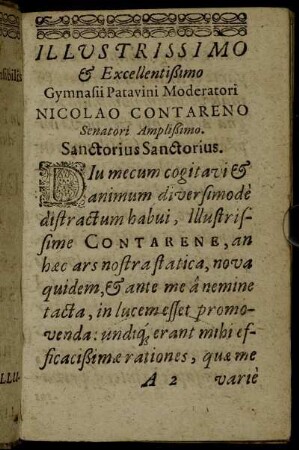 ILLVSTRISSIMO
& Excellentißimo
Gymnasii Patavini Moderatori
NICOLAO CONTARENO
Senatori Amplißimo.
Sanctorius Sanctorius.
DIu mecum cogitavi &
animum diversimodè
distractum habui, Illustris-
sime CONTARENE, an
hæc ars nostra statica, nova
quidem, & ante me â nemine
tacta, in lucem esset promo-
venda: undiq; erant mihi ef-
ficacißimæ rationes, quæ me
A 2 variè